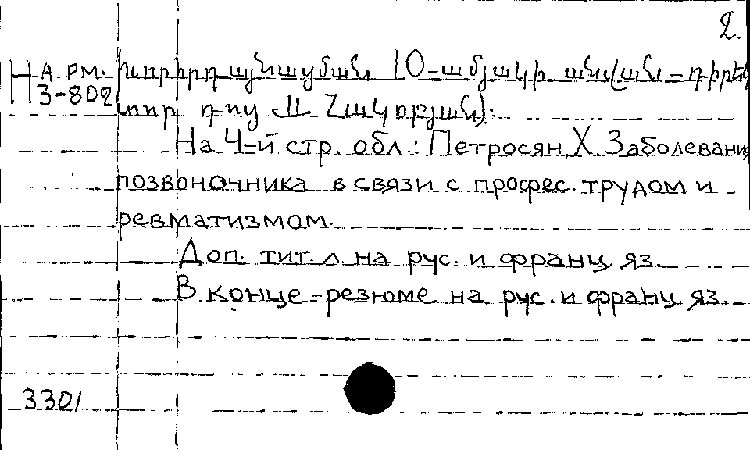 2.
Арм. 3-802
խորհրդային 10-ամյակի անվան – դիրեկ
տոր դ-ոց Հակոբյան).
На 4-й стр. обл.: Петросян Х. Заболевания
позвоночника в связи с профес. трудом и
ревматизмом.
Доп. тит. л. на рус. и франц. яз.
В конце - резюме на рус. и франц. яз.
3301